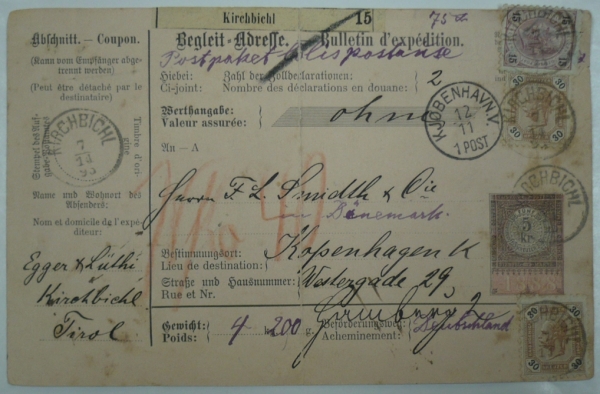 Kirchbichl 15
75 d
Abschnitt. — Coupon.
Begleit-Adresse. Bulletin d'expédition.
(Kann vom Empfänger abgetrennt werden)
(Peut être détaché par le destinataire)
Postpaket Colispostause
Hiebei: Zahl der Zolldeclarationen:
Ci-joint: Nombre des déclarations en douane:
2
Werthangabe:
Valeur assurée:
ohne
Stempel des Aufgabe-Postamtes
Timbre d'origine
KIRCHBICHL
7
11
93
KJØBENHAVN.V.
12
11
1 POST
An — A
Herrn F. L. Smidth & Cie
in Dänemark.
Name und Wohnort des Absenders:
Nom et domicile de l'expéditeur:
Egger & Lüthi
Kirchbichl
Tirol
Bestimmungsort:
Lieu de destination:
Kopenhagen K
Straße und Hausnummer:
Rue et Nr.
Vestergade 29
Hamburg
Gewicht:
Poids:
4 k 200 g
Beförderungsweg:
Acheminement:
Deutschland
KIRCHBICHL
15 15
30 30
KIRCHBICHL
30 30
KIRCHBICHL
5
KR
30 30
30 30